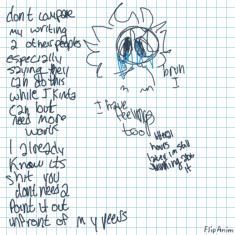 dont compare
my writing
2 other peoples
especially
saying they
can do this
while I kinda
can but
need more
work
I already
know its
shit you
dont need 2
point it out
infront of my peers
bruh
I
I have
feelings
too
literal
hours
later im still
thinking abt
it
FlipAnim